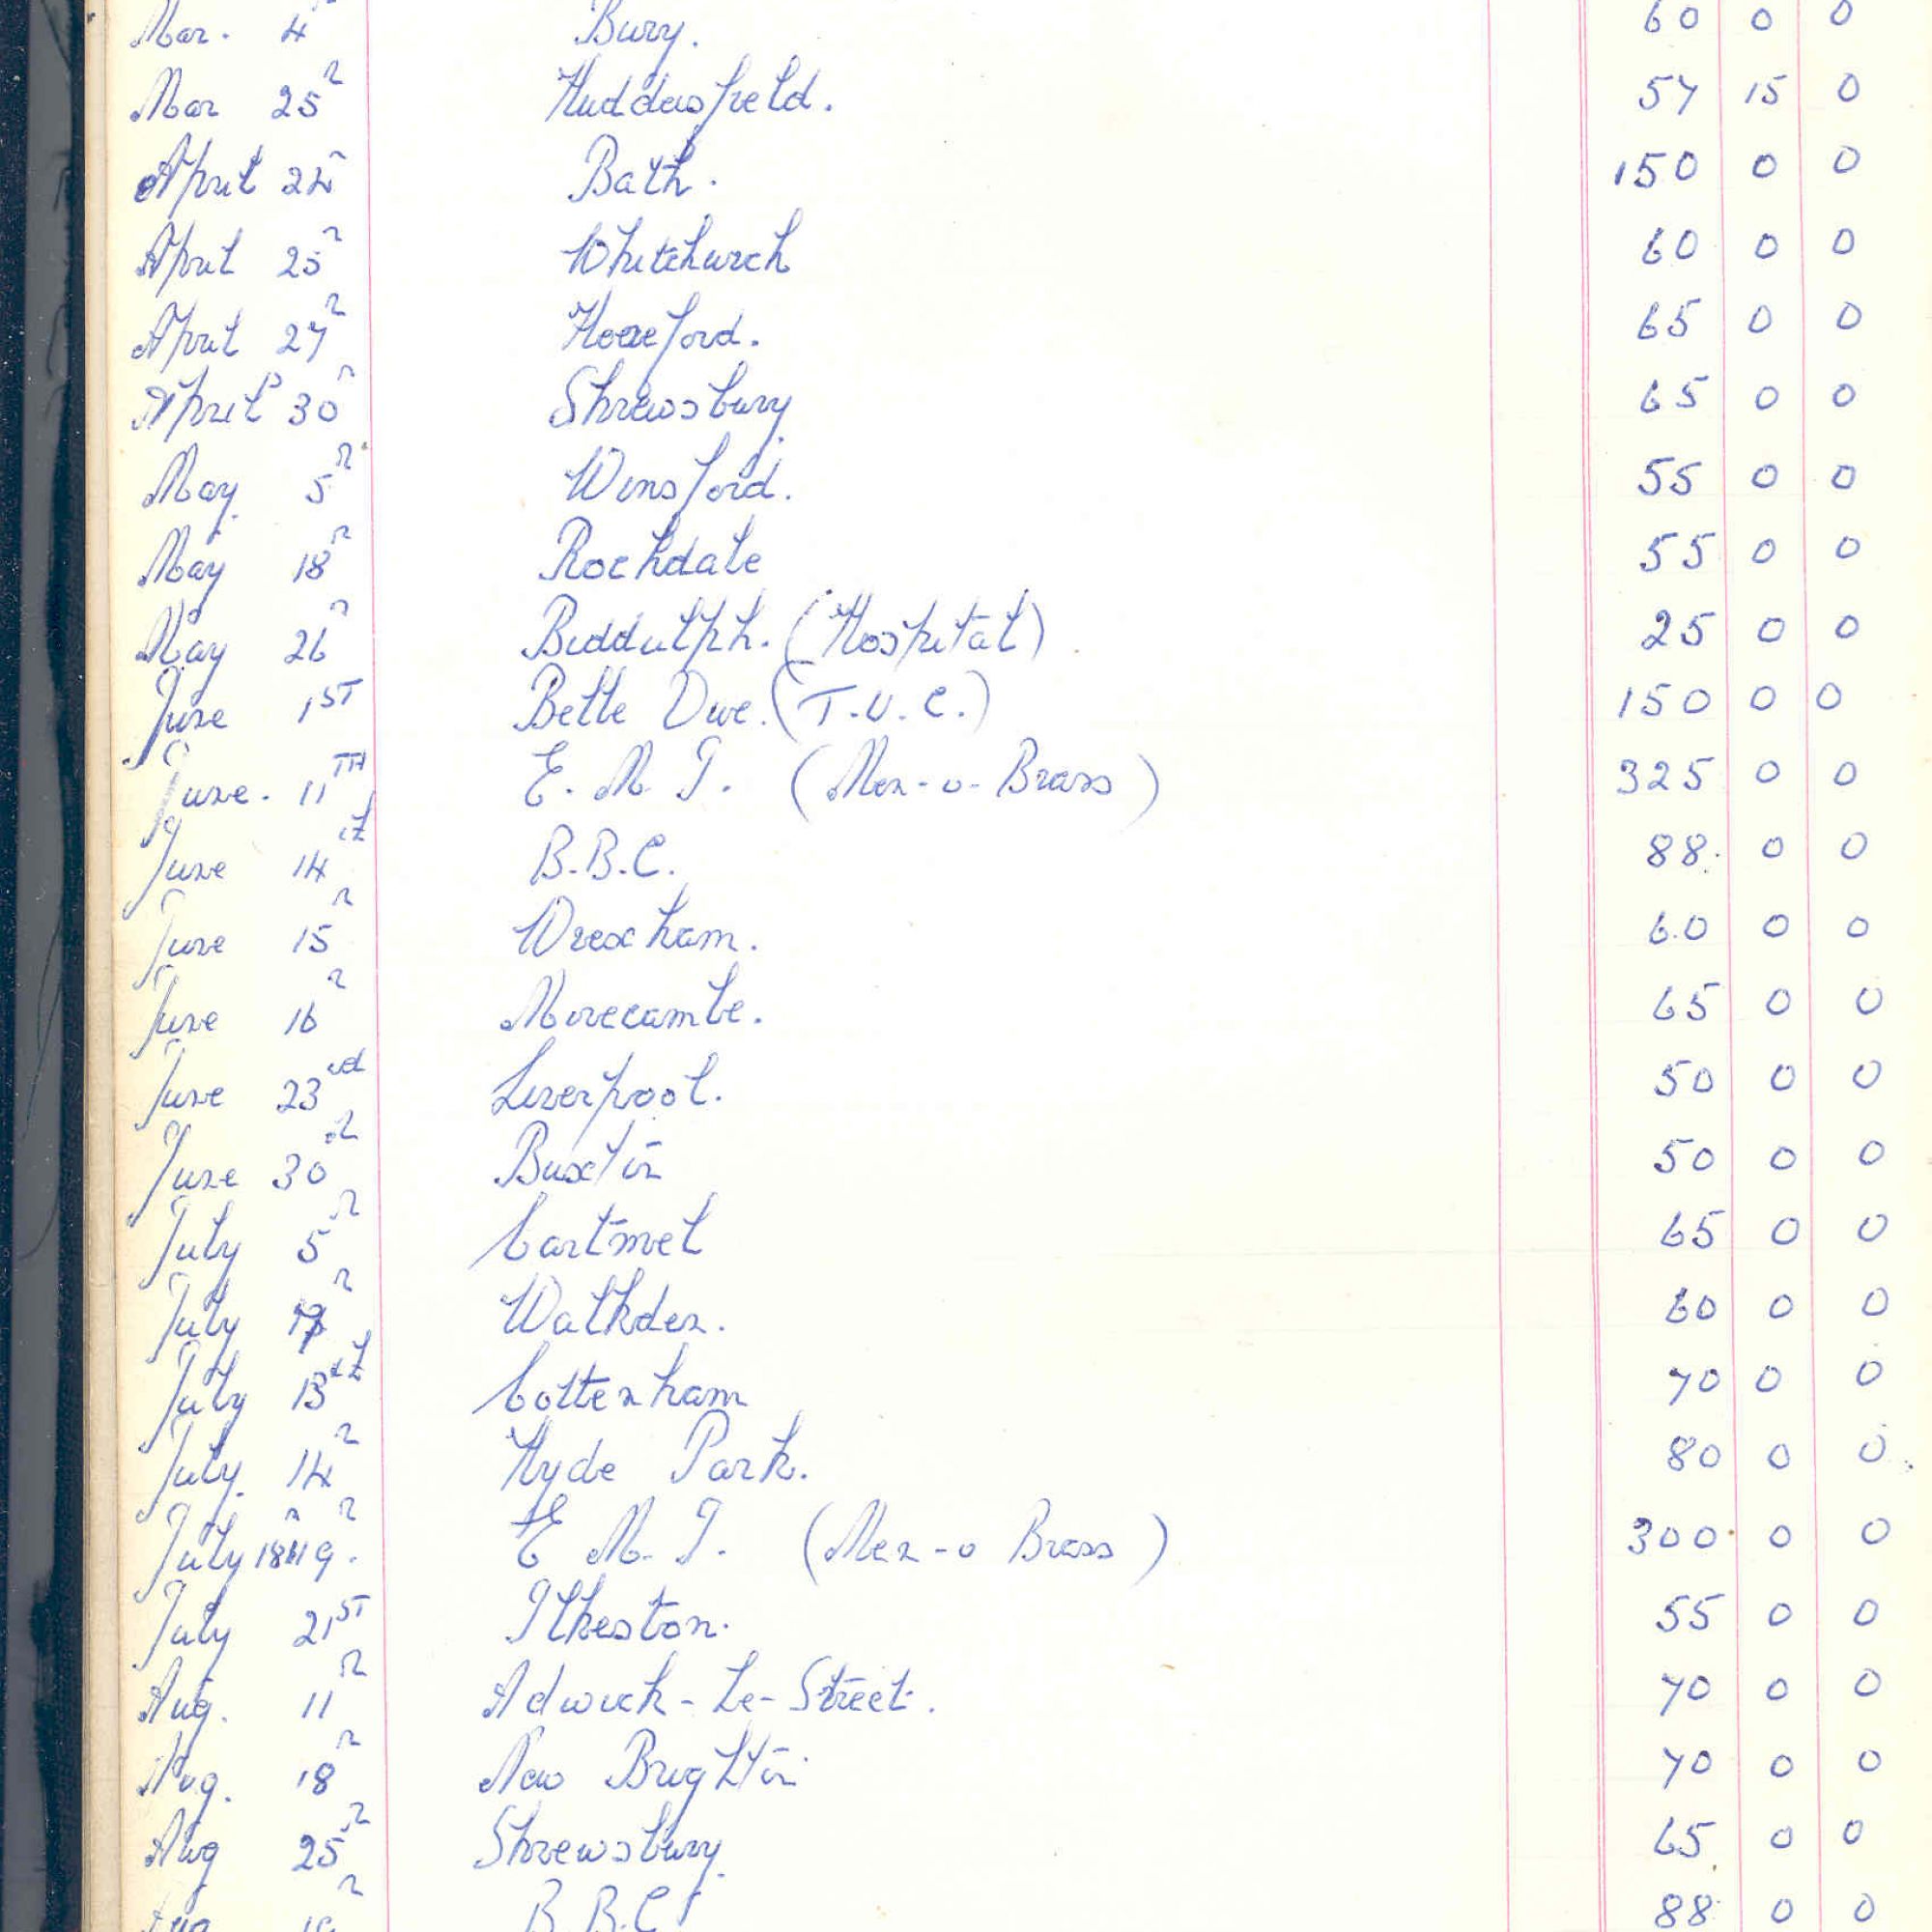 Mar. 4 Bury. 60 0 0
Mar 25 Huddersfield. 57 15 0
April 24 Bath. 150 0 0
April 25 Whitchurch 60 0 0
April 27 Hereford. 65 0 0
April 30 Shrewsbury 65 0 0
May 5 Winsford. 55 0 0
May 18 Rochdale 55 0 0
May 26 Biddulph. (Hospital) 25 0 0
June 1ST Belle Vue. (T.U.C.) 150 0 0
June. 11TH E. M. I. (Men-o-Brass) 325 0 0
June 14th B.B.C. 88. 0 0
June 15 Wrexham. 60 0 0
June 16 Morecambe. 65 0 0
June 23rd Liverpool. 50 0 0
June 30 Buxton 50 0 0
July 5 Cartmel 65 0 0
July Walkden. 60 0 0
July 13th Cottenham 70 0 0
July. 14 Hyde Park. 80 0 0
July 18 19. E M. I. (Men-o Brass) 300 0 0
July 21ST Ilkeston. 55 0 0
Aug. 11 Adwick-Le-Street. 70 0 0
Aug. 18 New Brighton 70 0 0
Aug 25 Shrewsbury 65 0 0
Aug B.B.C. 88 0 0